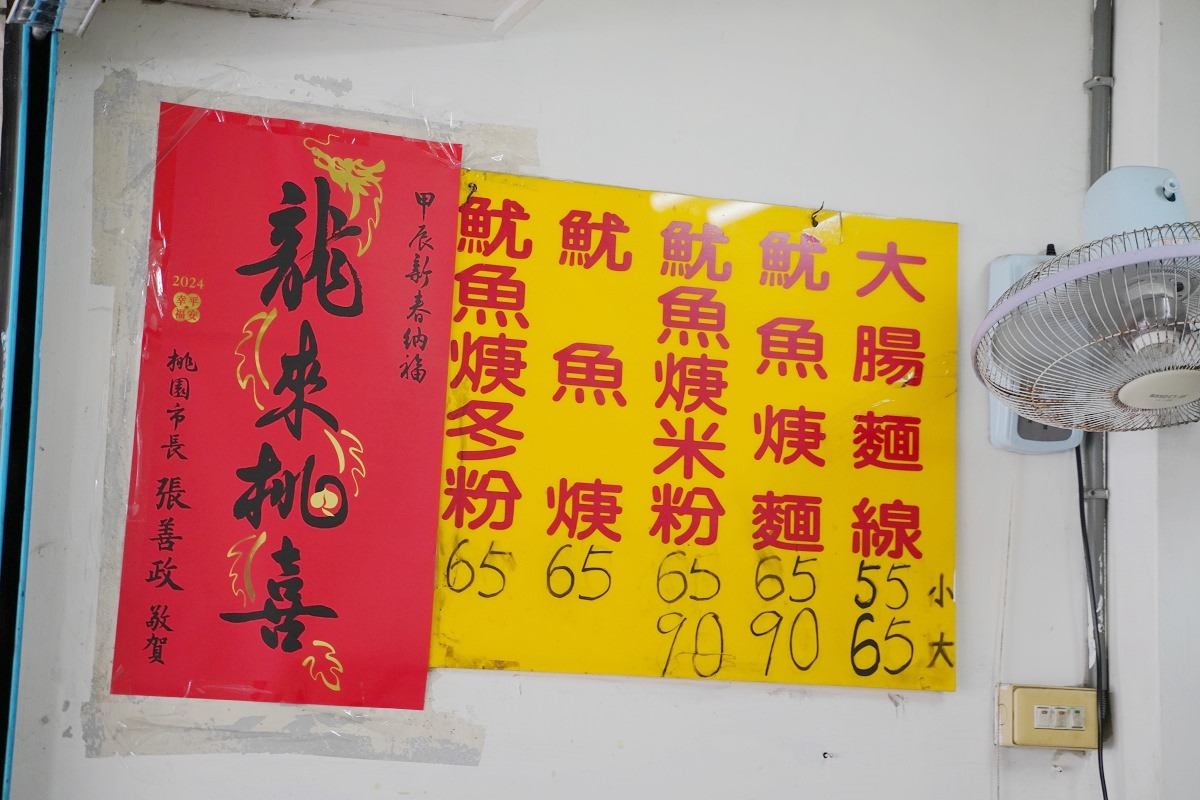 大腸麵線
55 小
65 大
魷魚焿麵
65
90
魷魚焿米粉
65
90
魷魚焿
65
魷魚焿冬粉
65
甲辰新春納福
龍來桃喜
2024
平安
幸福
桃園市長 張善政 敬賀